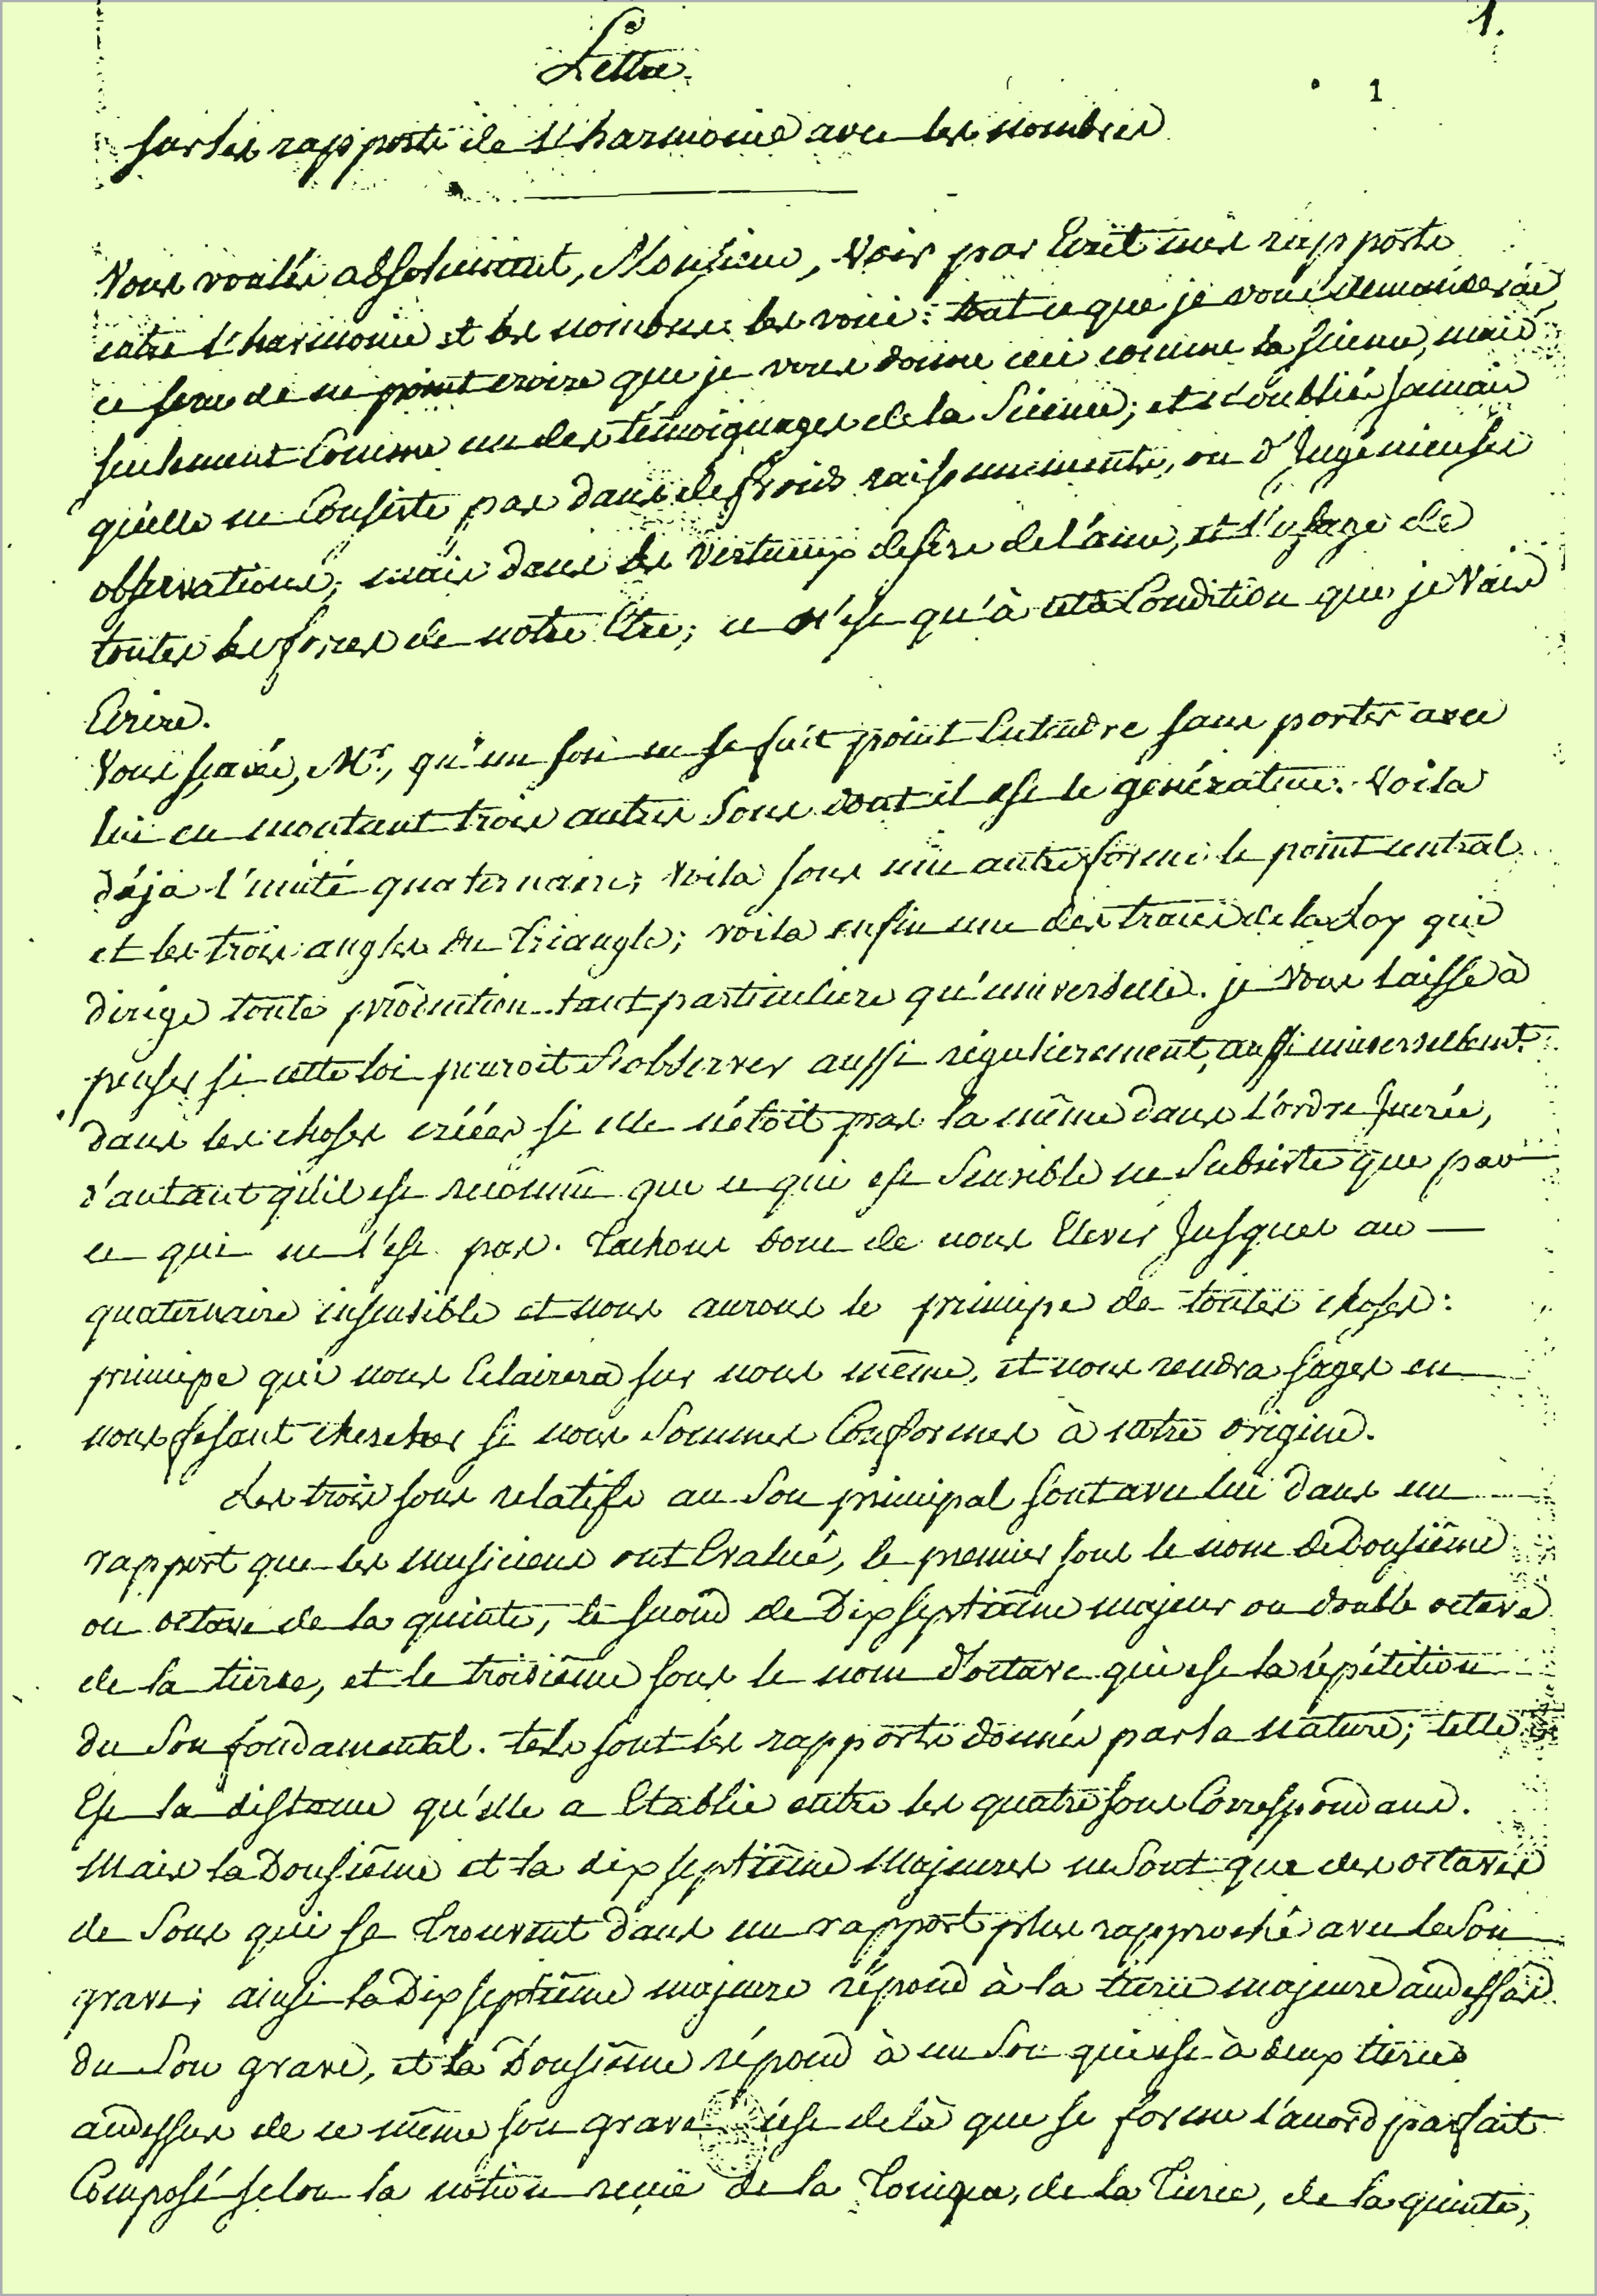 1.
Lettre
1
sur les rapports de l'harmonie avec les nombres
Vous voulés absolument, Monsieur, voir par Ecrit mes rapports
entre l'harmonie et les nombres les voici: tout ce que je vous demanderai
ce sera de ne point croire que je vous donne ceci comme la science, mais
seulement Comme un des témoignages de la Science; et n'oubliés jamais
qu'elle ne Consiste pas dans de froids raisonnements, ou d'Ingénieuses
observations, mais dans les vertueux desirs de l'ame, et l'usage de
toutes les forces de notre Etre; ce n'est qu'à cette Condition que je vais
Ecrire.
Vous sçavés, Mr., qu'un son ne se fait point Entendre sans porter avec
lui en montant trois autres Sons dont il est le générateur. Voila
déja l'unité quaternaire; voila sous une autre forme le point central
et les trois angles du Triangle; voila enfin une des traces de la Loy qui
dirige toute production tant particuliere qu'universelle. je vous laisse à
penser si cette loi pouroit s'observer aussi régulierement, aussi universellemt.
dans les choses créées si elle n'étoit pas la même dans l'ordre Incréé,
d'autant qu'il est reconnu que ce qui est Sensible ne Subsiste que par
ce qui ne l'est pas. Tachons donc de nous Elever Jusques au —
quaternaire insensible et nous aurons le principe de toutes choses:
principe qui nous Eclairera sur nous même, et nous rendra sages en
nous fesant chercher si nous Sommes Conformes à notre origine.
Les trois sons relatifs au Son principal sont avec lui dans un
rapport que les musiciens ont Evalué, le premier sous le nom de Dousiême
ou octave de la quinte, le second de Dix septième majeur ou double octave
de la tierce, et le troisiême sous le nom d'octave qui est la répétition
du Son fondamental. tels sont les rapports donnés par la nature; telle
Est la distance qu'elle a Etablie entre les quatre sons Correspondans.
Mais la Dousiême et la dix septiême Majeures ne Sont que des octaves
de Sons qui se Trouvent dans un rapport plus rapproché avec le Son
grave; ainsi la Dix septiême majeure répond à la tierce majeure audessus
du Son grave, et la Dousiême répond à un Son qui est à deux tierces
audessus de ce même son grave c'est delà que se forme l'accord parfait
Composé selon la notion reçue de la Tonique, de la Tierce, de la quinte,